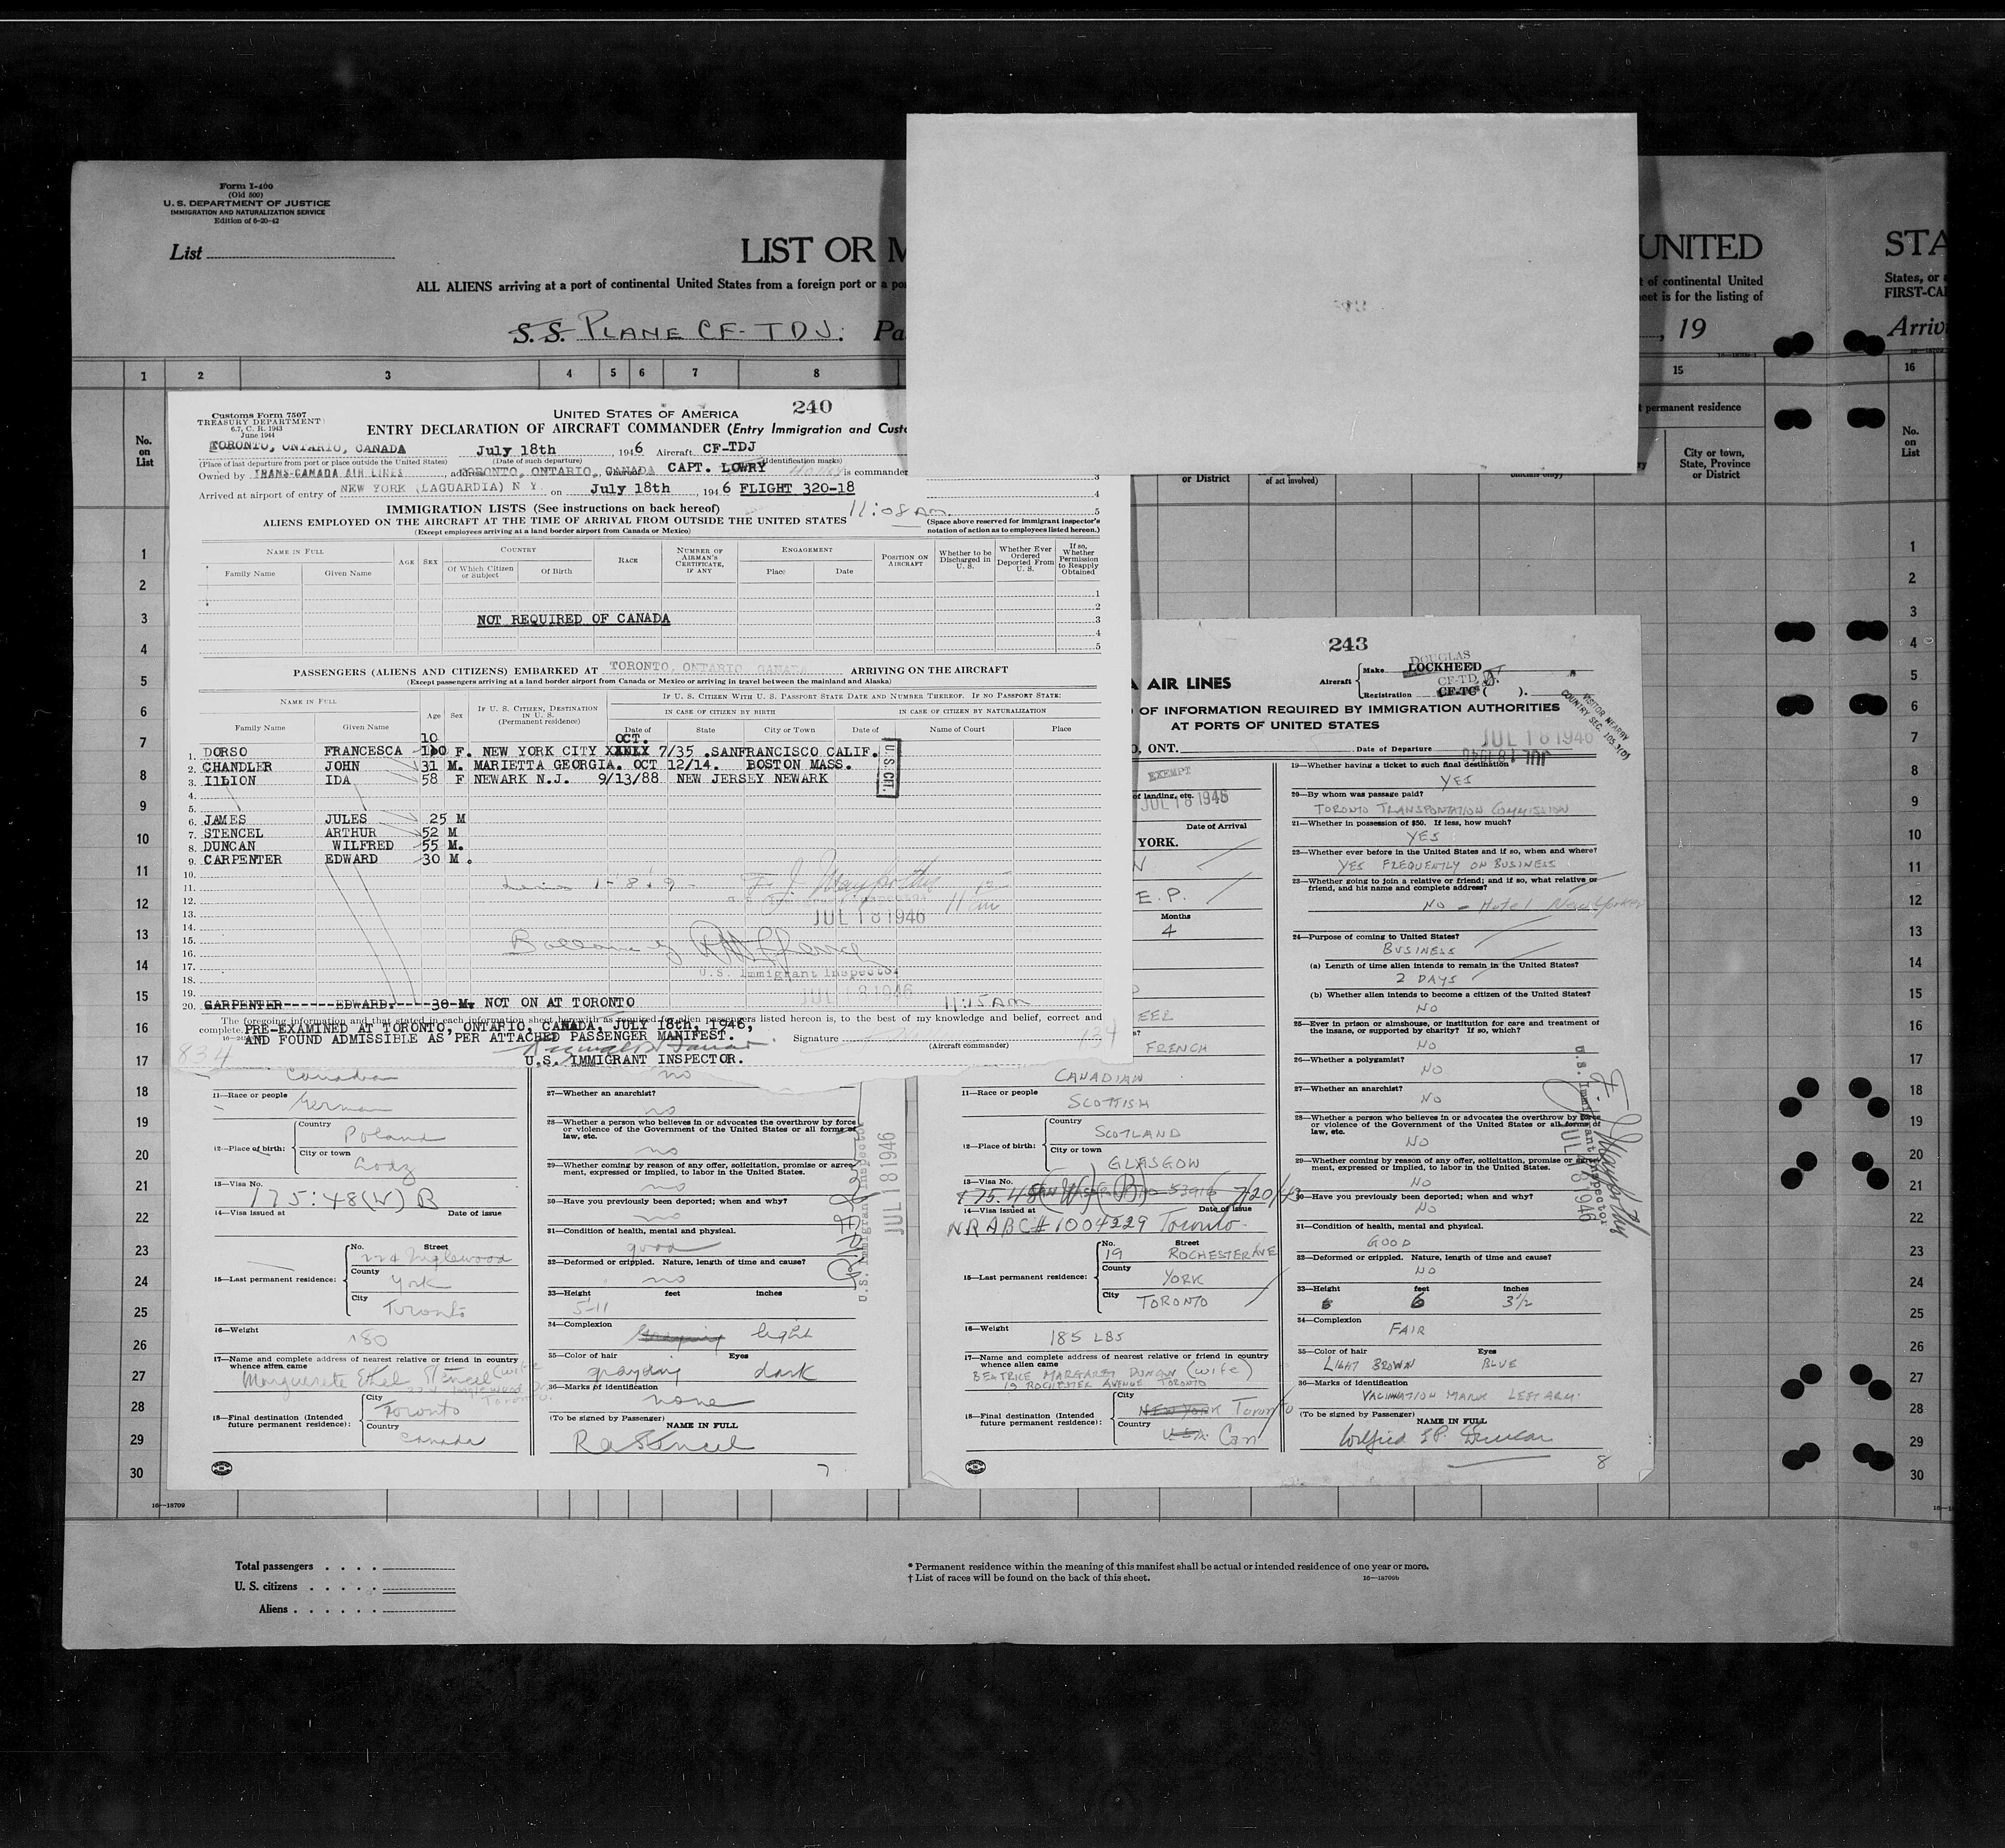 Form I-400
(Old 500)
U. S. DEPARTMENT OF JUSTICE
IMMIGRATION AND NATURALIZATION SERVICE
Edition of 6-20-42
List
LIST OR M
UNITED
STA
ALL ALIENS arriving at a port of continental United States from a foreign port or a po
t of continental United
eet is for the listing of
States, or
FIRST-CA
S.S. PLANE CF-TDJ. Pa
, 19
Arriv
1 2 3 4 5 6 7 8 15 16
No. on List
permanent residence
City or town, State, Province or District
or District
of act involved)
No. on List
240
Customs Form 7507
TREASURY DEPARTMENT
6.7, C. R. 1943
June 1944
UNITED STATES OF AMERICA
ENTRY DECLARATION OF AIRCRAFT COMMANDER (Entry Immigration and Custo
TORONTO, ONTARIO, CANADA July 18th , 1946 Aircraft CF-TDJ
(Place of last departure from port or place outside the United States) (Date of such departure) (Identification marks)
Owned by TRANS-CANADA AIR LINES address TORONTO, ONTARIO, CANADA CAPT. LOWRY is commander
Arrived at airport of entry of NEW YORK (LAGUARDIA) N Y. on July 18th , 1946 FLIGHT 320-18
11:08 AM.
IMMIGRATION LISTS (See instructions on back hereof)
ALIENS EMPLOYED ON THE AIRCRAFT AT THE TIME OF ARRIVAL FROM OUTSIDE THE UNITED STATES
(Except employees arriving at a land border airport from Canada or Mexico)
(Space above reserved for immigrant inspector's notation of action as to employees listed hereon.)
NAME IN FULL AGE SEX COUNTRY RACE NUMBER OF AIRMAN'S CERTIFICATE, IF ANY ENGAGEMENT POSITION ON AIRCRAFT Whether to be Discharged in U. S. Whether Ever Ordered Deported From U. S. If so, Whether Permission to Reapply Obtained
Family Name Given Name Of Which Citizen or Subject Of Birth Place Date
NOT REQUIRED OF CANADA
PASSENGERS (ALIENS AND CITIZENS) EMBARKED AT TORONTO, ONTARIO CANADA ARRIVING ON THE AIRCRAFT
(Except passengers arriving at a land border airport from Canada or Mexico or arriving in travel between the mainland and Alaska)
NAME IN FULL Age Sex IF U. S. CITIZEN, DESTINATION IN U. S. (Permanent residence) IF U. S. CITIZEN WITH U. S. PASSPORT STATE DATE AND NUMBER THEREOF. IF NO PASSPORT STATE:
IN CASE OF CITIZEN BY BIRTH IN CASE OF CITIZEN BY NATURALIZATION
Family Name Given Name Date of State City or Town Date of Name of Court Place
10 OCT.
1. DORSO FRANCESCA F. NEW YORK CITY 7/35 .SANFRANCISCO CALIF.
2. CHANDLER JOHN 31 M. MARIETTA GEORGIA. OCT 12/14. BOSTON MASS.
3. ILLION IDA 58 F NEWARK N.J. 9/13/88 NEW JERSEY NEWARK
U.S. CIT.
4.
5.
6. JAMES JULES 25 M
7. STENCEL ARTHUR 52 M
8. DUNCAN WILFRED 55 M.
9. CARPENTER EDWARD 30 M.
10.
11.
12.
13. JUL 18 1946
14.
15.
16.
17. U.S. Immigrant Inspector
18.
19. JUL 18 1946
20. CARPENTER------EDWARD.----30-M. NOT ON AT TORONTO 11:15 AM
The foregoing information and that stated in each information sheet herewith as required for alien passengers listed hereon is, to the best of my knowledge and belief, correct and
complete. PRE-EXAMINED AT TORONTO, ONTARIO, CANADA, JULY 18th, 1946,
AND FOUND ADMISSIBLE AS PER ATTACHED PASSENGER MANIFEST.
Signature
(Aircraft commander)
U.S. IMMIGRANT INSPECTOR.
834
134
Canadian
11—Race or people German
12—Place of birth: Country Poland
City or town Lodz
13—Visa No. 175:48(W) B
14—Visa issued at Date of issue
15—Last permanent residence: No. Street 224 Inglewood
County York
City Toronto
16—Weight 180
17—Name and complete address of nearest relative or friend in country whence alien came
Marguerite Ethel Stencel (wife
18—Final destination (Intended future permanent residence): City Toronto
Country Canada
no
27—Whether an anarchist? no
28—Whether a person who believes in or advocates the overthrow by force or violence of the Government of the United States or all forms of law, etc. no
29—Whether coming by reason of any offer, solicitation, promise or agreement, expressed or implied, to labor in the United States. no
30—Have you previously been deported; when and why? no
31—Condition of health, mental and physical. good
32—Deformed or crippled. Nature, length of time and cause? no
33—Height feet inches 5-11
34—Complexion light
35—Color of hair Eyes graying dark
36—Marks of identification none
(To be signed by Passenger) NAME IN FULL
RaStencel
7
U.S. Immigrant Inspector
JUL 18 1946
243
A AIR LINES
Aircraft Make LOCKHEED DOUGLAS
Registration CF-TC ( ). CF-TD J.
OF INFORMATION REQUIRED BY IMMIGRATION AUTHORITIES
AT PORTS OF UNITED STATES
VISITOR NEARBY COUNTRY SEC. 105.3(D)
O, ONT. Date of Departure JUL 18 1946
EXEMPT
of landing, etc. JUL 18 1946
Date of Arrival
YORK.
N
E.P.
Months
4
EER
FRENCH
CANADIAN
11—Race or people SCOTTISH
12—Place of birth: Country SCOTLAND
City or town GLASGOW
13—Visa No. 53916 7/20/43
14—Visa issued at Date of issue
NRABC# 1004229 Toronto
15—Last permanent residence: No. Street 19 ROCHESTER AVE
County YORK
City TORONTO
16—Weight 185 LBS
17—Name and complete address of nearest relative or friend in country whence alien came
BEATRICE MARGARET DUNCAN (wife)
19 ROCHESTER AVENUE TORONTO
18—Final destination (Intended future permanent residence): City NEW YORK Toronto
Country U.S.A. Can
19—Whether having a ticket to such final destination YES
20—By whom was passage paid?
TORONTO TRANSPORTATION COMMISSION
21—Whether in possession of $50. If less, how much? YES
22—Whether ever before in the United States and if so, when and where?
YES FREQUENTLY ON BUSINESS
23—Whether going to join a relative or friend; and if so, what relative or friend, and his name and complete address?
NO - Hotel New Yorker
24—Purpose of coming to United States? BUSINESS
(a) Length of time alien intends to remain in the United States? 2 DAYS
(b) Whether alien intends to become a citizen of the United States? NO
25—Ever in prison or almshouse, or institution for care and treatment of the insane, or supported by charity? If so, which? NO
26—Whether a polygamist? NO
27—Whether an anarchist? NO
28—Whether a person who believes in or advocates the overthrow by force or violence of the Government of the United States or all forms of law, etc. NO
29—Whether coming by reason of any offer, solicitation, promise or agreement, expressed or implied, to labor in the United States. NO
30—Have you previously been deported; when and why? NO
31—Condition of health, mental and physical. GOOD
32—Deformed or crippled. Nature, length of time and cause? NO
33—Height feet inches 6 3 1/2
34—Complexion FAIR
35—Color of hair Eyes LIGHT BROWN BLUE
36—Marks of identification VACINNATION MARK LEFT ARM.
(To be signed by Passenger) NAME IN FULL
Wilfred E P. Duncan
8
U.S. Immigrant Inspector
JUL 18 1946
16—18709
Total passengers
U. S. citizens
Aliens
* Permanent residence within the meaning of this manifest shall be actual or intended residence of one year or more.
† List of races will be found on the back of this sheet.
16—18709b